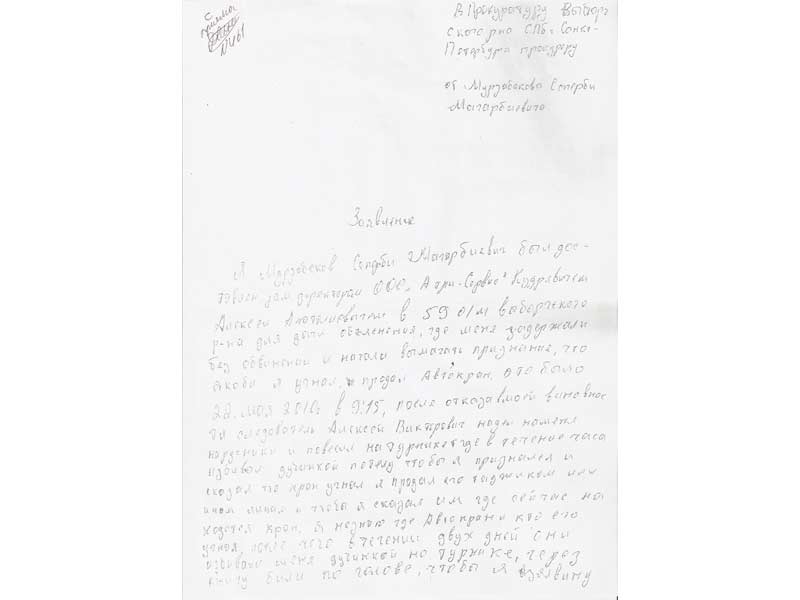 с
В Прокуратуру Выборг
ского р-на СПб г Санкт-
Петербурга прокурору
от Мурзабекова Сеперби
Магарбиевича
Заявление
Я Мурзабеков Сеперби Магарбиевич был дос-
тавлен зам директором ООО „Атри-Сервис" Кудрявичем
Алексеем Анатолиевичем в 59 о/м выборгского
р-на для дачи объяснения, где меня задержали
без обвинения и начали вымагать признание, что
якобы я угнал, и продал Автокран. Это было
22. мая 2010г в 9:15, после отказа моей виновнос
ти следователь Алексей Викторович надел на меня
наручники и повесил на турник где в течение часа
избивал дубинкой потому чтобы я признался и
сказал что кран угнал я продал его таджикам или
иным лицам и чтобы я сказал им где сейчас на
ходится кран, я незнаю где Автокран и кто его
угнал, после чего в течении двух дней они
избивали меня дубинкой на турнике, через
книгу били по голове, чтобы я взял вину